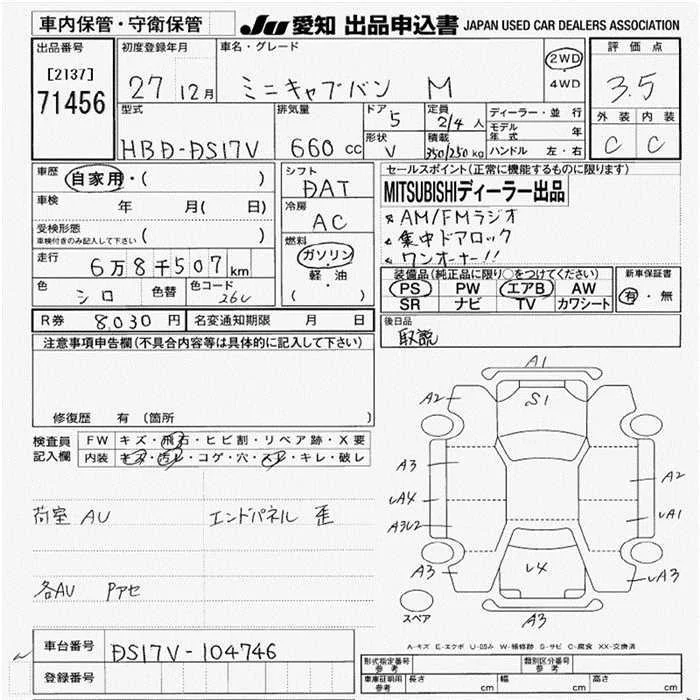 車内保管・守衛保管
JU 愛知 出品申込書 JAPAN USED CAR DEALERS ASSOCIATION
出品番号
[2137]
71456
初度登録年月
27 12月
車名・グレード
ミニキャブバン M
2WD
4WD
評価点
3.5
外装 内装
C C
型式
HBD-DS17V
排気量
660 cc
ドア 5
形状 V
定員 2/4 人
積載 350/250 kg
ディーラー・並行
モデル年式 年
ハンドル 左・右
車歴 自家用・( )
車検 年 月( 日)
受検形態 ( )
車検付きのみ記入して下さい
走行 6万8千507km
色 シロ 色替 色コード 26U
シフト DAT
冷房 AC
燃料 ガソリン
軽・油
( )
セールスポイント(正常に機能するものに限ります)
MITSUBISHIディーラー出品
AM/FMラジオ
集中ドアロック
ワンオーナー!!
装備品(純正品に限り○をつけてください)
PS PW エアB AW
SR ナビ TV カワシート
新車保証書
有・無
R券 8,030円 名変通知期限 月 日
後日品
取説
注意事項申告欄(不具合内容等は具体的に記入して下さい)
修復歴 有 (箇所 )
検査員記入欄
FW キズ・飛石・ヒビ割・リペア跡・X要
内装 キズ・汚レ・コゲ・穴・スレ・キレ・破レ
荷室 AU エンドパネル 歪
各AU Pアセ
A1
A2 S1
A3 A2
A4 A1
A3U2
A3 4 A3
A3
スペア
A-キズ E-エクボ U-凹み W-補修跡 S-サビ C-腐食 XX-交換済
車台番号 DS17V-104746
登録番号
形式指定番号 参考 類別区分番号 参考
車庫証明用 参考 長さ cm 幅 cm 高さ cm